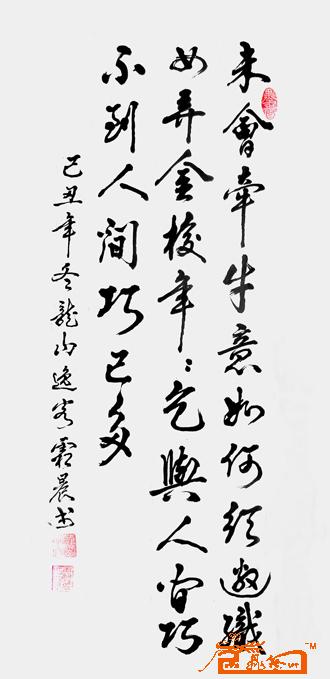 未會牽牛意如何須邀織
女弄金梭年〻乞與人间巧
不到人間巧已多
己丑年冬龍山逸客霜晨书